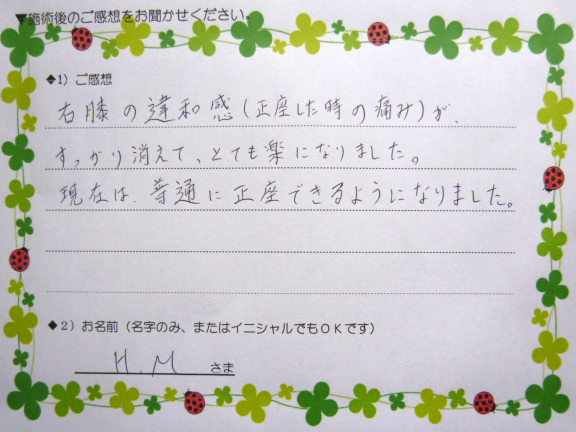 ▼施術後のご感想をお聞かせください。
◆1）ご感想
右膝の違和感（正座した時の痛み）が、
すっかり消えて、とても楽になりました。
現在は、普通に正座できるようになりました。
◆2）お名前（名字のみ、またはイニシャルでもＯＫです）
H.M さま